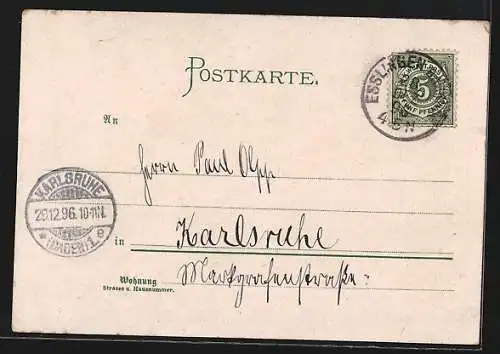 POSTKARTE.
ESSLINGEN
5
An
Herrn Paul Opp
KARLSRUHE
29.12.96.10-11N.
* (BADEN) 1. e
in Karlsruhe
Wohnung Markgrafenstraße:
Strasse u. Hausnummer.